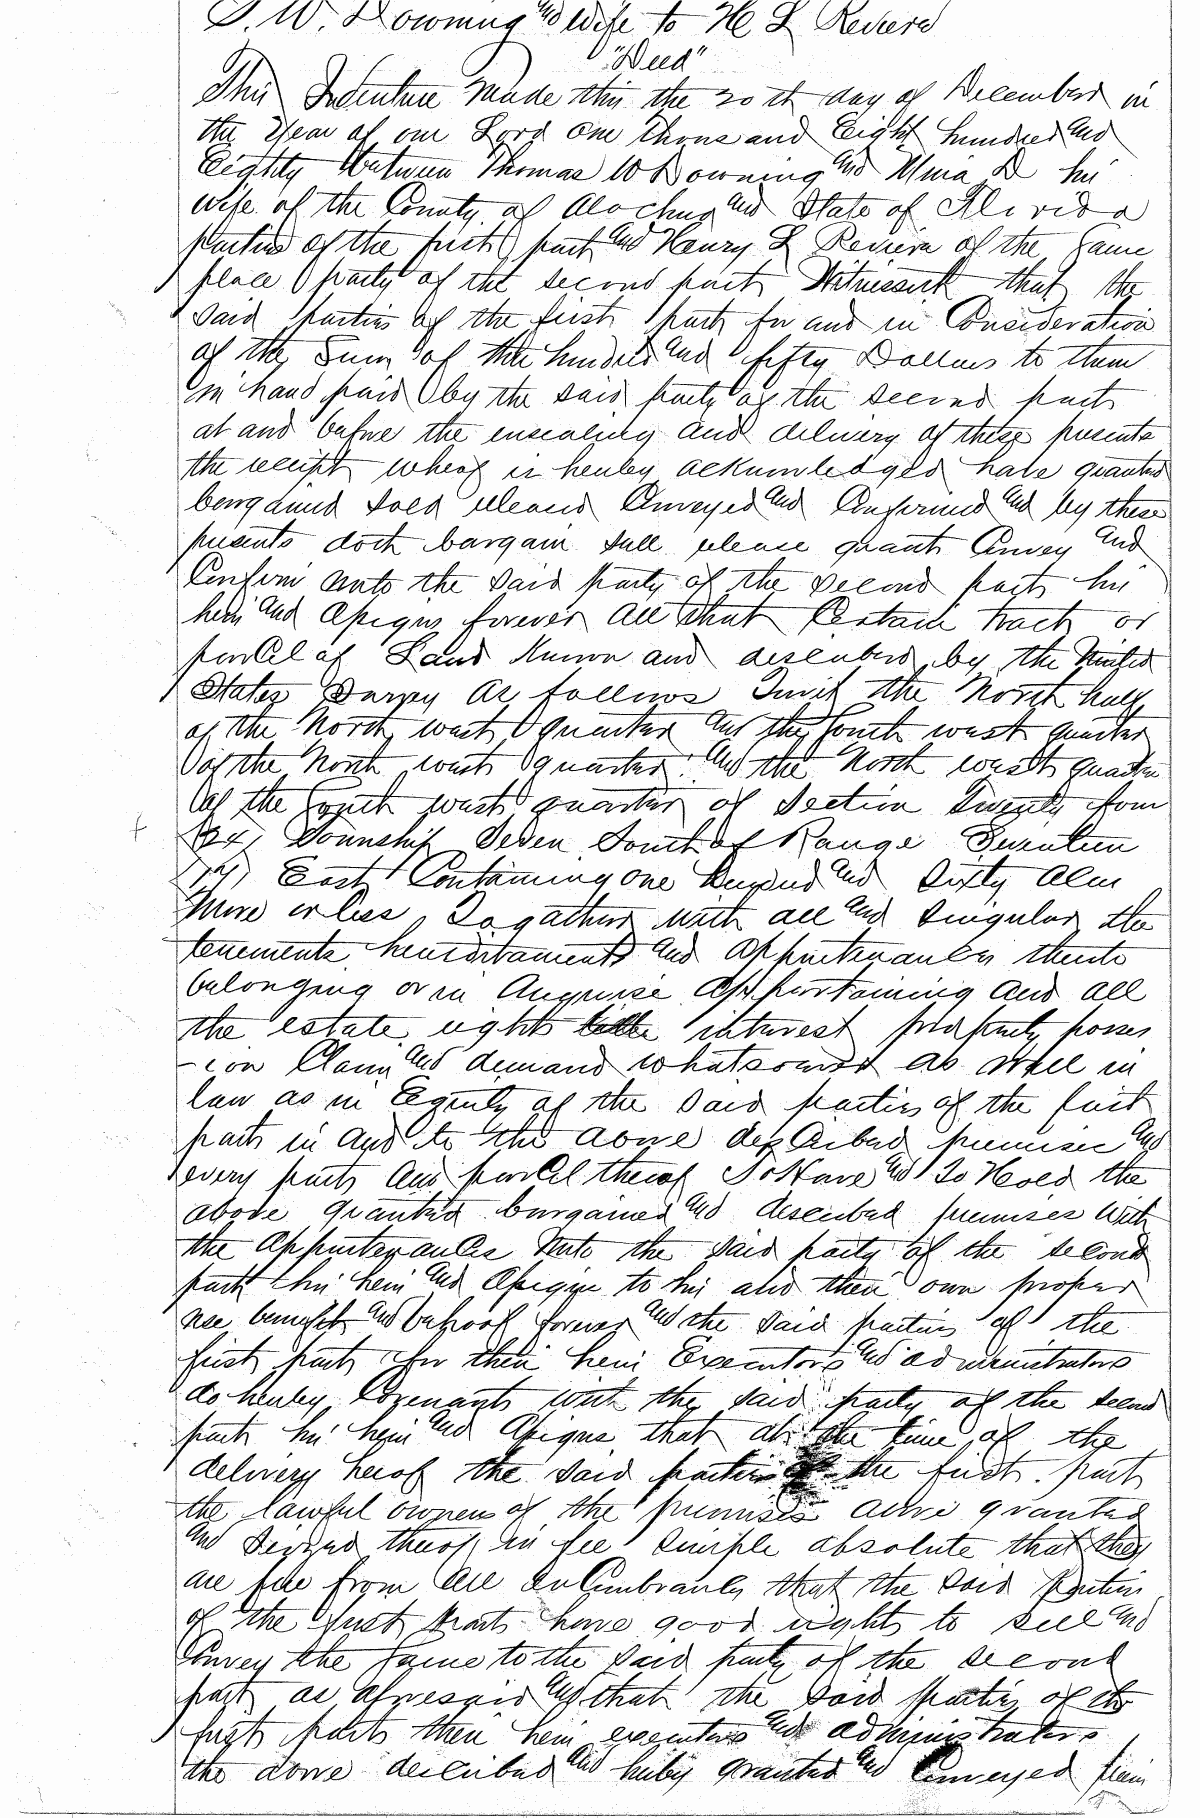 T. W. Downing and wife to H L Reviere
"Deed"
This Indenture Made this the 20th day of December in
the Year of our Lord One Thousand Eight hundred and
Eighty between Thomas W Downing and Mina D his
wife of the County of Alachua and State of Florida
parties of the first part and Henry L Reviere of the Same
place party of the second part Witnesseth that the
said parties of the first part for and in Consideration
of the Sum of three hundred and fifty Dollars to them
in hand paid by the said party of the second part
at and before the ensealing and delivery of these presents
the receipt wheof is hereby acknowledged have granted
bargained sold released Conveyed and Confirmed and by these
presents doth bargain sell release grant Convey and
Confirm unto the said party of the second part his
heirs and assigns forever all that Certain tract or
parcel of Land Known and described by the United
States Survey as follows Towit the North half
of the North west quarter and the South west quarter
of the North west quarter and the North west quarter
of the South west quarter of Section Twenty four
(24) Township Seven South of Range Seventeen
(17) East Containing one hundred and Sixty acres
More or less, Togather with all and singular the
tenements hereditaments and appurtenances thereto
belonging or in Anywise appertaining and all
the estate right title interest property posses
-ion Claim and demand whatsoever as well in
law as in Equity of the said parties of the first
part in and to the above described premises and
every part and parcel thereof To Have and To Hold the
above granted bargained and described premises with
the appurtenances unto the said party of the second
part his heirs and assigns to his and their own proper
use benefit and behoof forever and the said parties of the
first part for their heirs Executors and administrators
do hereby Covenant with the said party of the second
part his heirs and assigns that at the time of the
delivery hereof the said parties of the first part
the lawful owners of the premises above granted
and seized thereof in fee simple absolute that they
are free from all inCumbrances that the said parties
of the first part have good right to sell and
Convey the same to the said party of the second
part as aforesaid and that the said parties of the
first part their heirs executors and administrators
the above described and hereby granted and Conveyed prem